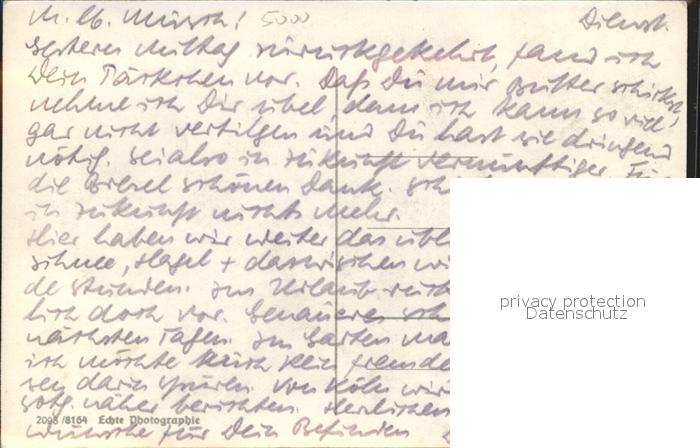 M. lb. Mirsch! 5000 Dienst.
Gestern Mittag zurückgekehrt, fand ich
Dein Päckchen vor. Daß Du mir Butter schickst,
nehme ich Dir übel, denn ich kann so viel
gar nicht vertilgen und Du hast sie dringend
nötig. Sei also in Zukunft vernünftiger. Für
die Brezel schönen Dank. Sch
in Zukunft nichts mehr.
Hier haben wir weiter das übl
Schnee, Hagel + dazwischen wi
de Stunden. Im Urlaub
lich doch vor. Genaueres sch
nächsten Tagen. Im Garten ma
ich möchte kein fremde
sen darin spüren. Von Köln wir
näher berichten. Herzlichen
2098/8164 Echte Photographie
wünsche für Dein Befinden
privacy protection
Datenschutz